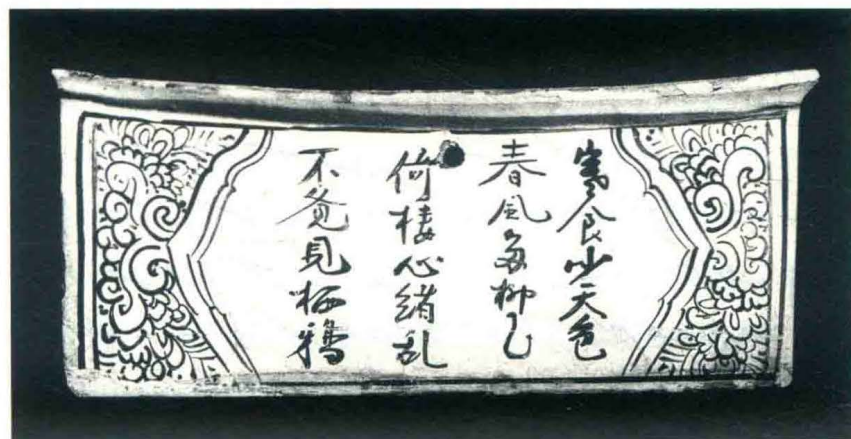 寒食少天色
春風多柳花
倚楼心緒乱
不覓見栖鴉